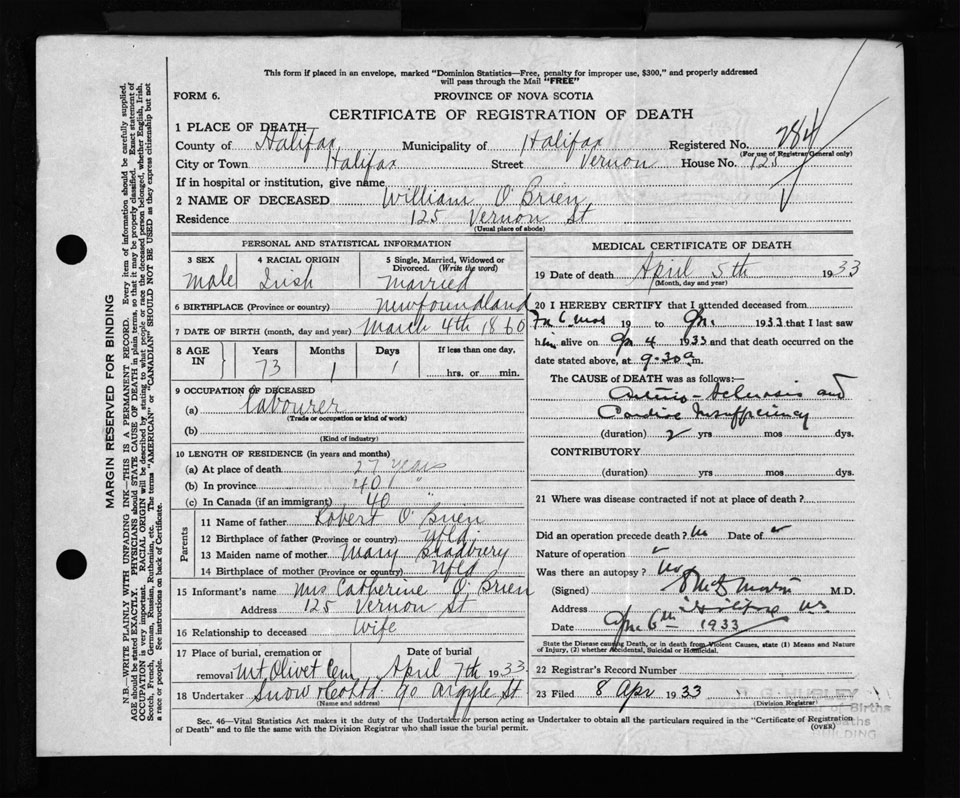 This form if placed in an envelope, marked "Dominion Statistics—Free, penalty for improper use, $300," and properly addressed
will pass through the Mail "FREE"
FORM 6. PROVINCE OF NOVA SCOTIA
CERTIFICATE OF REGISTRATION OF DEATH
1 PLACE OF DEATH
County of Halifax Municipality of Halifax Registered No. 284
(For use of Registrar General only)
City or Town Halifax Street Vernon House No. 125
If in hospital or institution, give name
2 NAME OF DECEASED William O'Brien
Residence 125 Vernon St
(Usual place of abode)
PERSONAL AND STATISTICAL INFORMATION
3 SEX 4 RACIAL ORIGIN 5 Single, Married, Widowed or
Divorced. (Write the word)
Male Irish Married
6 BIRTHPLACE (Province or country) Newfoundland
7 DATE OF BIRTH (month, day and year) March 4th 1860
8 AGE IN Years Months Days If less than one day,
73 1 1 hrs. or min.
9 OCCUPATION OF DECEASED
(a) Labourer
(Trade or occupation or kind of work)
(b)
(Kind of industry)
10 LENGTH OF RESIDENCE (in years and months)
(a) At place of death 27 years
(b) In province 40 "
(c) In Canada (if an immigrant) 40 "
Parents
11 Name of father Robert O'Brien
12 Birthplace of father (Province or country) Nfld
13 Maiden name of mother Mary Bradbury
14 Birthplace of mother (Province or country) Nfld
15 Informant's name Mrs Catherine O'Brien
Address 125 Vernon St
16 Relationship to deceased Wife
17 Place of burial, cremation or Date of burial
removal Mt Olivet Cem April 7th 1933
18 Undertaker Snow & Co Ltd 90 Argyle St
(Name and address)
MEDICAL CERTIFICATE OF DEATH
19 Date of death April 5th 1933
(Month, day and year)
20 I HEREBY CERTIFY that I attended deceased from
6 mos 19 to 1933 that I last saw
him alive on 4 1933 and that death occurred on the
date stated above, at 9.30 a m.
The CAUSE of DEATH was as follows:
Arterio-sclerosis and
Cardiac Insufficiency
(duration) 2 yrs mos dys.
CONTRIBUTORY
(duration) yrs mos dys.
21 Where was disease contracted if not at place of death?
Did an operation precede death? No Date of
Nature of operation
Was there an autopsy? No
(Signed) M.D.
Address Halifax NS
Date 6th 1933
State the Disease causing Death, or in death from Violent Causes, state (1) Means and Nature
of Injury, (2) whether Accidental, Suicidal or Homicidal.
22 Registrar's Record Number
23 Filed 8 Apr 1933
(Division Registrar)
Sec. 46—Vital Statistics Act makes it the duty of the Undertaker or person acting as Undertaker to obtain all the particulars required in the "Certificate of Registration
of Death" and to file the same with the Division Registrar who shall issue the burial permit. (OVER)
MARGIN RESERVED FOR BINDING
N.B.—WRITE PLAINLY WITH UNFADING INK—THIS IS A PERMANENT RECORD. Every item of information should be carefully supplied.
AGE should be stated EXACTLY. PHYSICIANS should STATE CAUSE OF DEATH in plain terms, so that it may be properly classified. Exact statement of
OCCUPATION is very important. RACIAL ORIGIN will be described by stating to what people or race the deceased person belonged, whether English, Irish,
Scotch, French, German, Russian, Ruthenian, etc. The terms "AMERICAN" or "CANADIAN" SHOULD NOT BE USED as they express citizenship but not
a race or people. See instructions on back of Certificate.